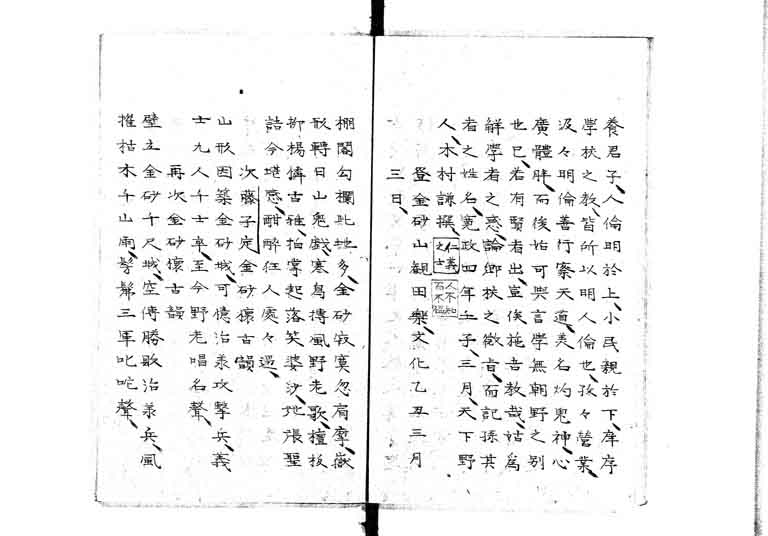 養君子、人倫明於上、小民親於下、庠序
学校之教、皆所以明人倫也、孜々営業、
汲々明倫善行察天道、美名灼鬼神、心
廣體胖、而後始可與言學無朝野之別
也已、若有賢者出、豈俟施吾教哉、姑為
解学者之惑、論郷校之徴旨、而記孫其
者之姓名、寛政四年壬子、三月、天下野
人、木村謙撰、
仁義之士
人不知而不慍
登金砂山観田楽、文化乙丑三月
三日、
棚閣勾欄匙地多、金砂寂寞忽肩摩、嶽
形轉日山鬼戯、寒鳥摶風野老歌、檀板
抑揚憐古雅、拍掌起落笑婆沙、地張聖
詰今堪感、酣酔狂人處々過、
次藤子定金砂懐古韻
山形因築金砂城、可憶治承攻撃兵、義
士九人千士卒、至今野老唱名聲、
再次金砂懐古韻
壁立金砂千尺城、空傳勝敗治承兵、風
摧枯木千山雨、髣髴三軍叱咤聲、